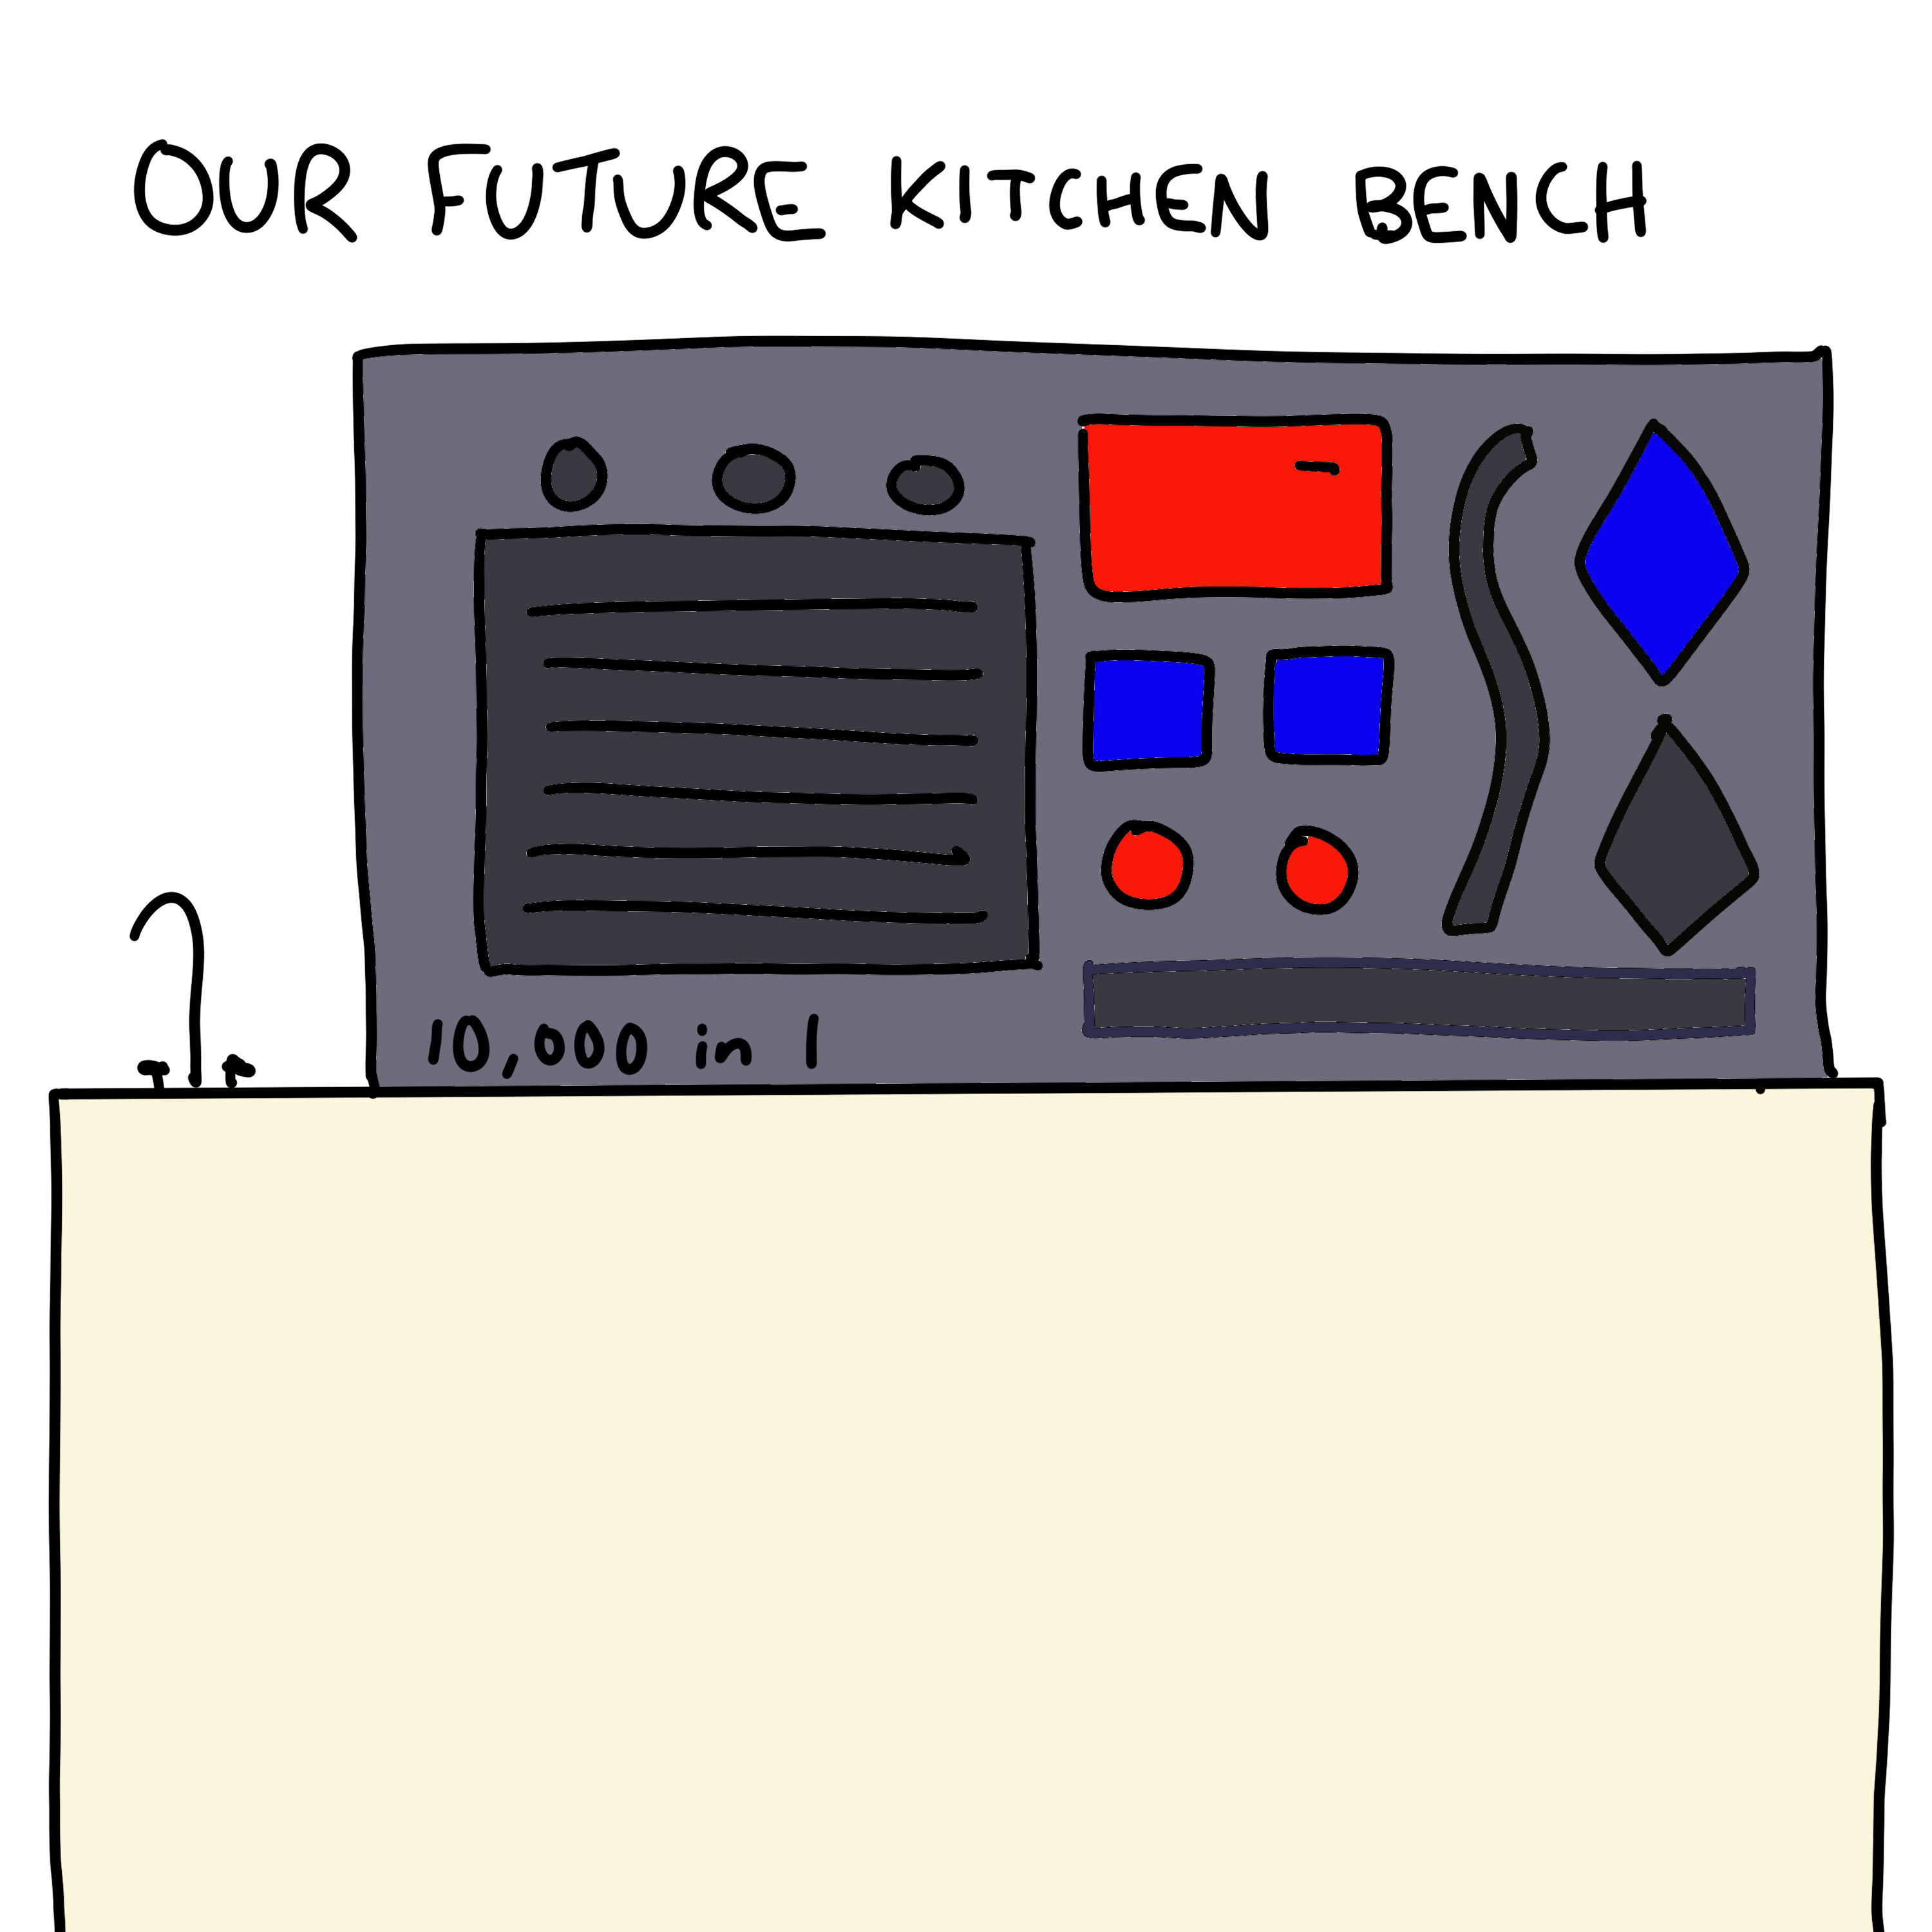 OUR FUTURE KITCHEN BENCH
10,000 in 1